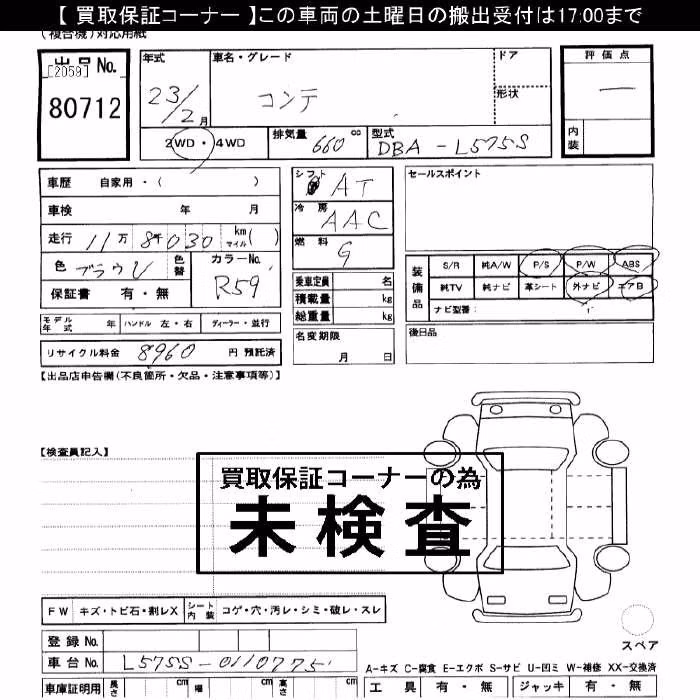 【 買取保証コーナー 】この車両の土曜日の搬出受付は17:00まで
(複合機)対応用紙
出品No.
[2059]
80712
年式
23/2月
車名・グレード
コンテ
ドア
形状
評価点
一
内装
2WD・4WD
排気量 660 cc
型式 DBA - L575S
車歴 自家用・( )
車検 年 月
走行 11万 8千030 km マイル( )
色 ブラウン
色替
カラーNo. R59
保証書 有・無
シフト AT
冷房 AAC
燃料 G
乗車定員 名
積載量 kg
総重量 kg
名変期限
月 日
セールスポイント
装備品
S/R 純A/W P/S P/W ABS
純TV 純ナビ 革シート 外ナビ エアB
ナビ型番：
後日品
モデル年式 年 ハンドル 左・右 ディーラー・並行
リサイクル料金 8960 円 預託済
【出品店申告欄(不良箇所・欠品・注意事項等)】
【検査員記入】
買取保証コーナーの為
未検査
FW キズ・トビ石・割レX
シート内装 コゲ・穴・汚レ・シミ・破レ・スレ
登録No.
車台No. L575S-0110775
車庫証明用 長さ cm 幅 cm 高さ cm
スペア
A-キズ C-腐食 E-エクボ S-サビ U-凹ミ W-補修 XX-交換済
工具 有・無 ジャッキ 有・無